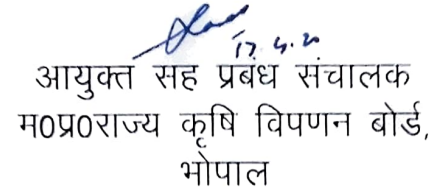 17.4.20
आयुक्त सह प्रबंध संचालक
म0प्र0राज्य कृषि विपणन बोर्ड,
भोपाल